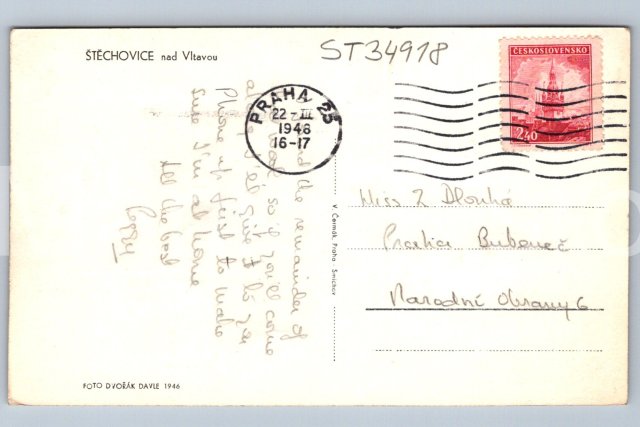 ŠTĚCHOVICE nad Vltavou
ST34918
ČESKOSLOVENSKO
2.40
PRAHA 25
22 - III
1948
16-17
and the remainder of
so if you'll come
I'll give it to you
Phone up first to make
sure I'm at home
All the best
Peggy
V. Čermák, Praha - Smíchov
Miss Z Dlouhá
Praha Bubeneč
Národní Obrany 6
FOTO DVOŘÁK DAVLE 1946